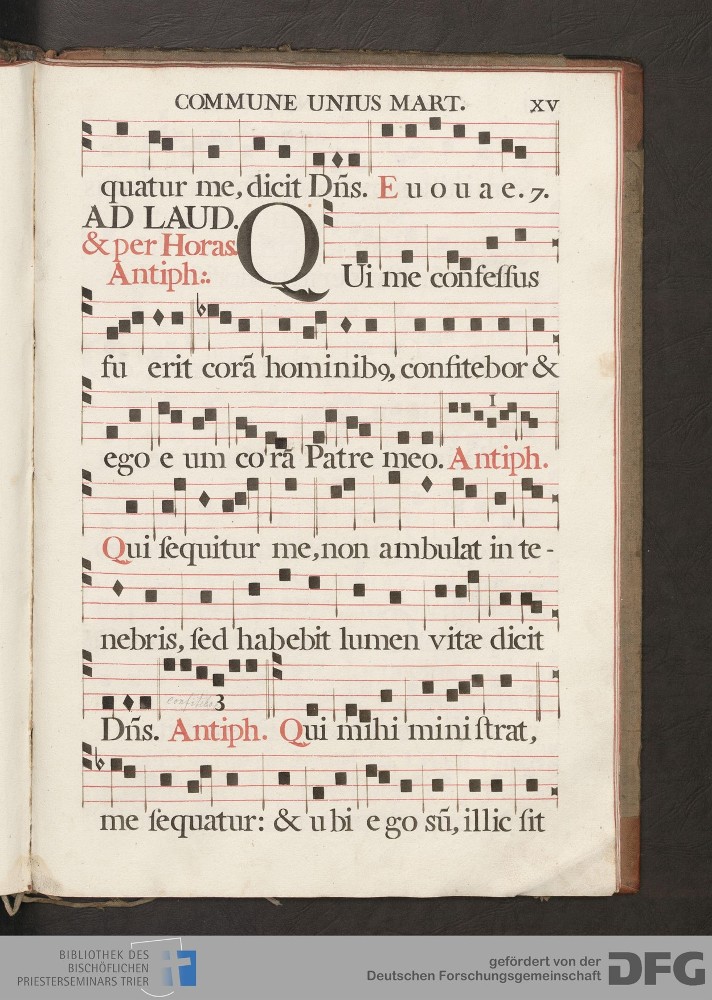 COMMUNE UNIUS MART. XV
quatur me, dicit Dñs. E u o u a e. 7.
AD LAUD.
& per Horas.
Antiph:.
QUi me confeſſus
fu erit corã hominibꝯ, confitebor &
1
ego e um co rã Patre meo. Antiph.
Qui ſequitur me, non ambulat in te-
nebris, ſed habebit lumen vitæ dicit
3
Dñs. Antiph. Qui mihi miniſtrat,
me ſequatur: & u bi e go sũ, illic ſit
BIBLIOTHEK DES
BISCHÖFLICHEN
PRIESTERSEMINARS TRIER
gefördert von der
Deutschen Forschungsgemeinschaft
DFG